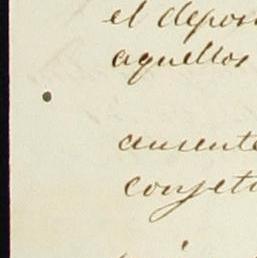 el depos
aquellos
ausente
conjetu